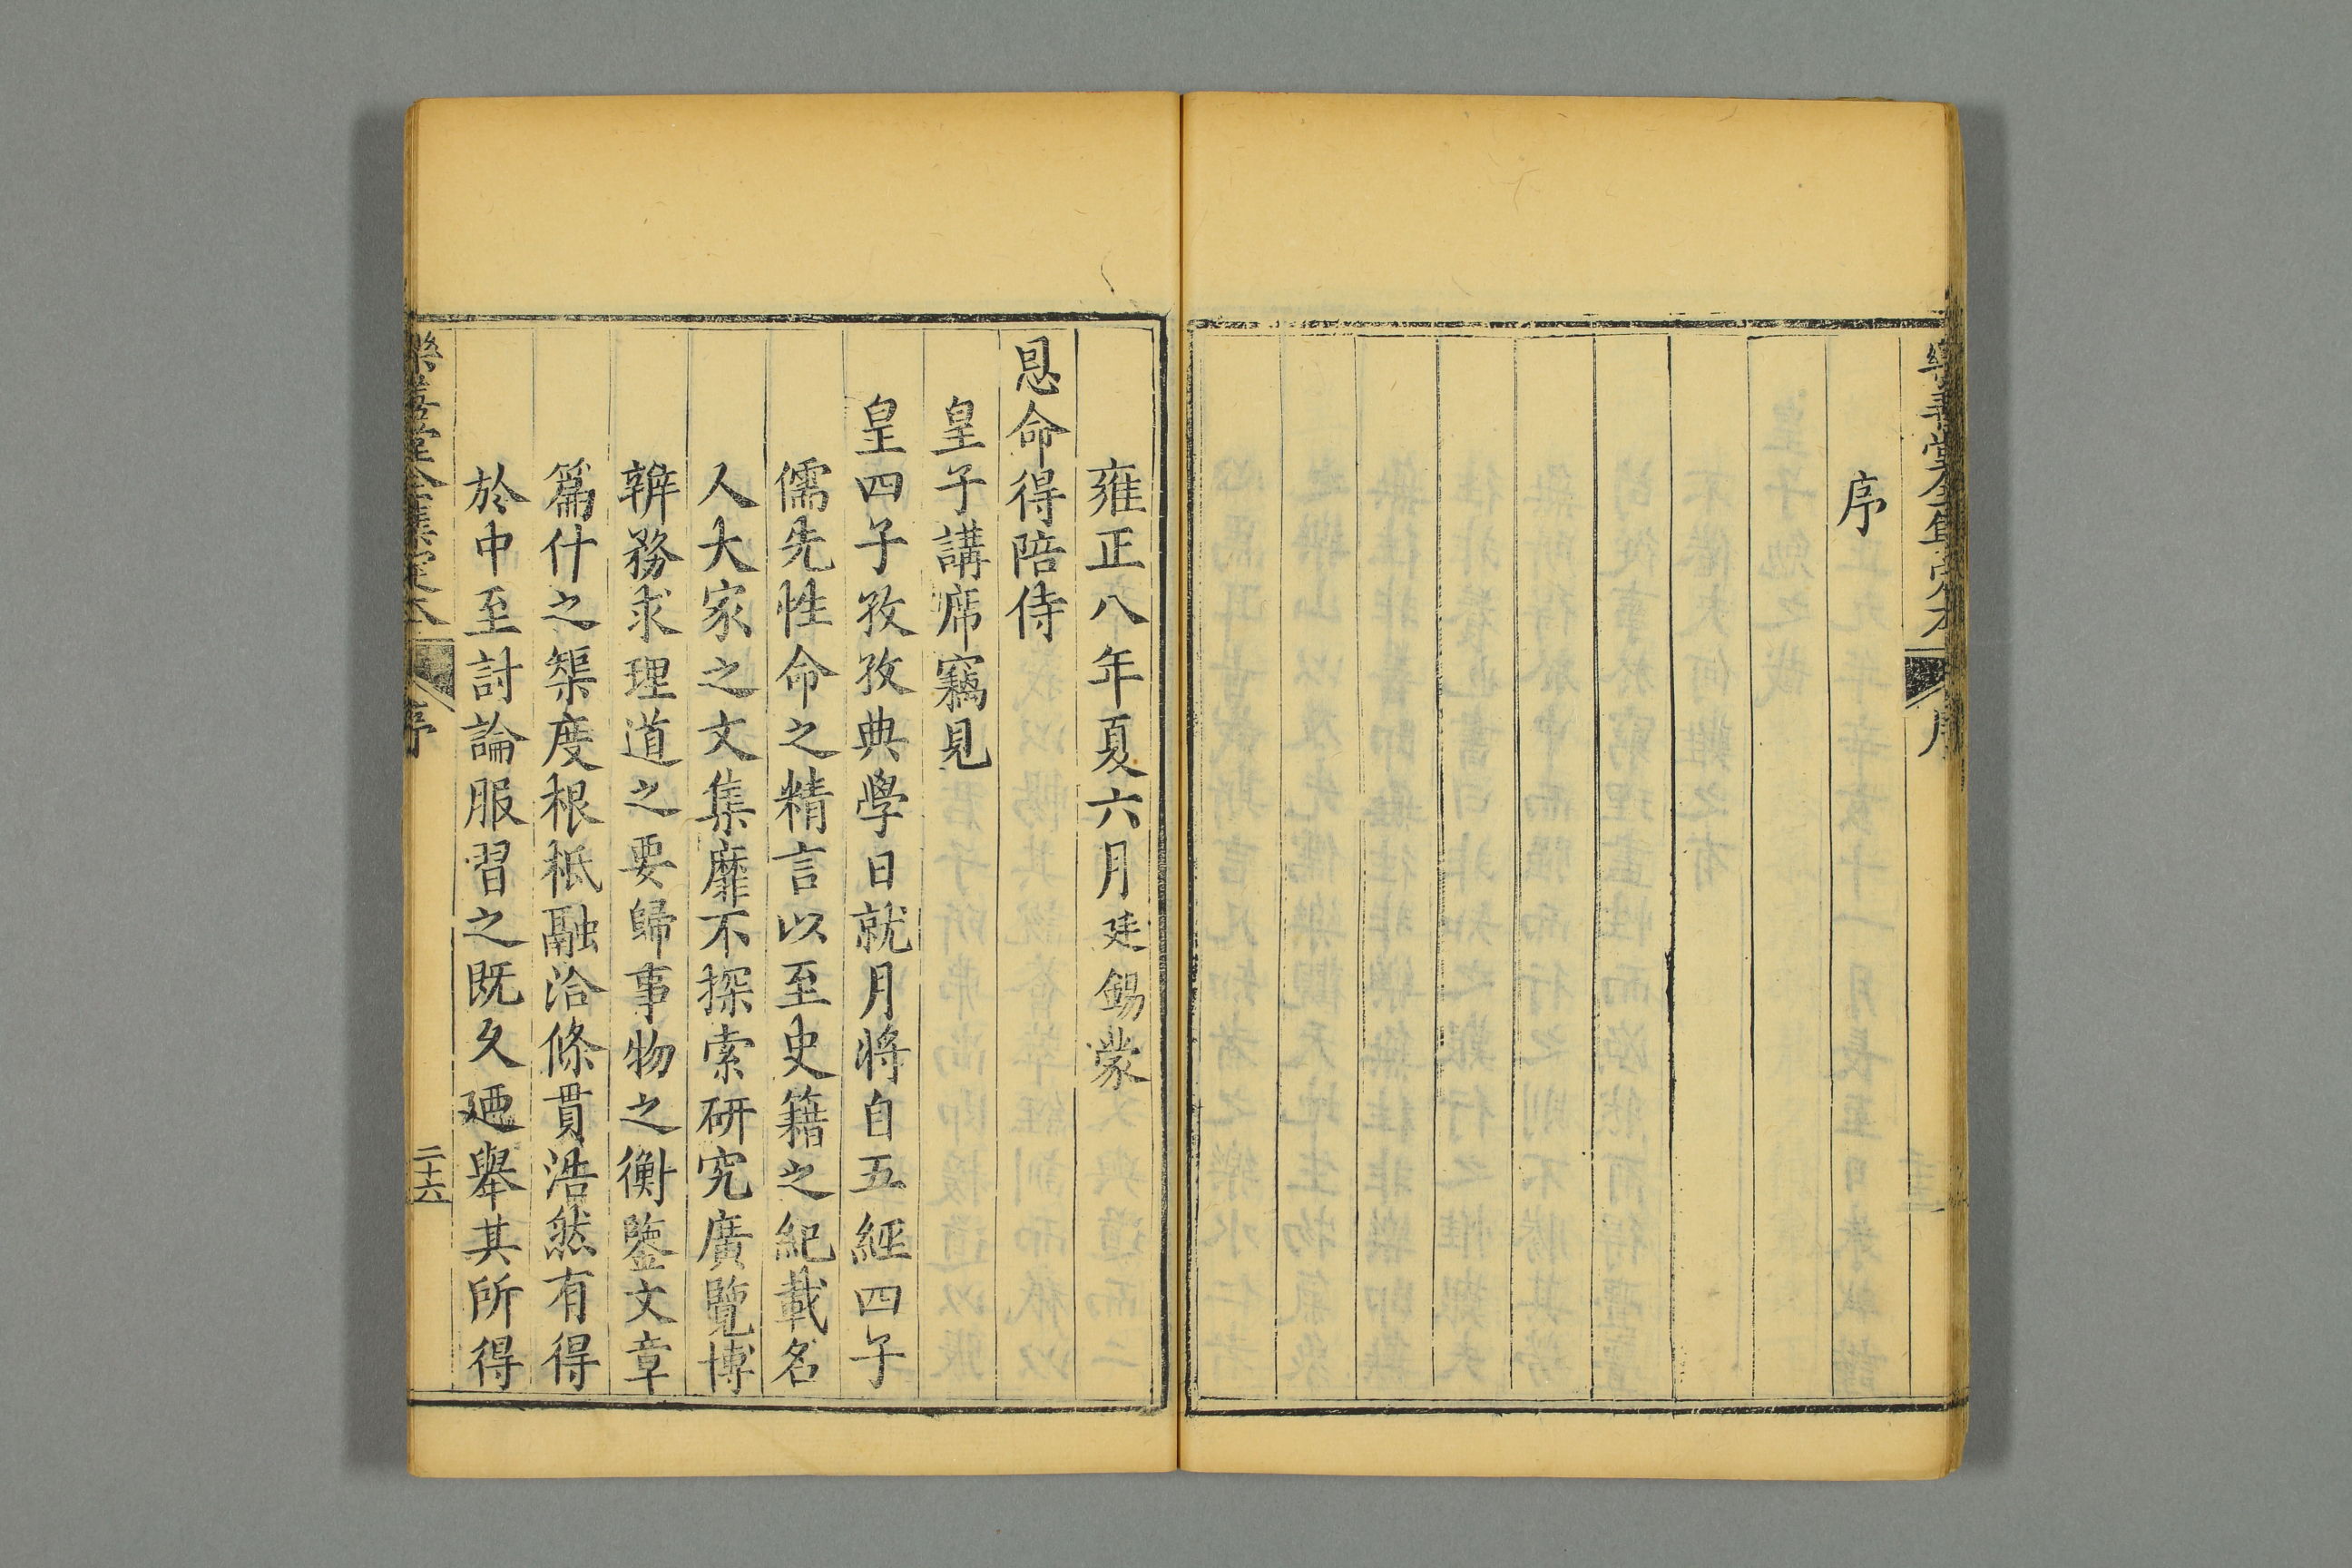 樂善堂全集定本
序
序
雍正八年夏六月廷錫蒙
恩命得陪侍
皇子講席竊見
皇四子孜孜典學日就月將自五經四子
儒先性命之精言以至史籍之紀載名
人大家之文集靡不探索研究廣覽博
辨務求理道之要歸事物之衡鑒文章
篇什之榘度根柢融洽條貫浩然有得
於中至討論服習之既久廼舉其所得
樂善堂全集定本
序
二十六